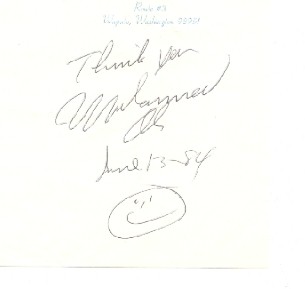 Route #3
Washington
Thank you
Muhammad
Ali
June 13-84